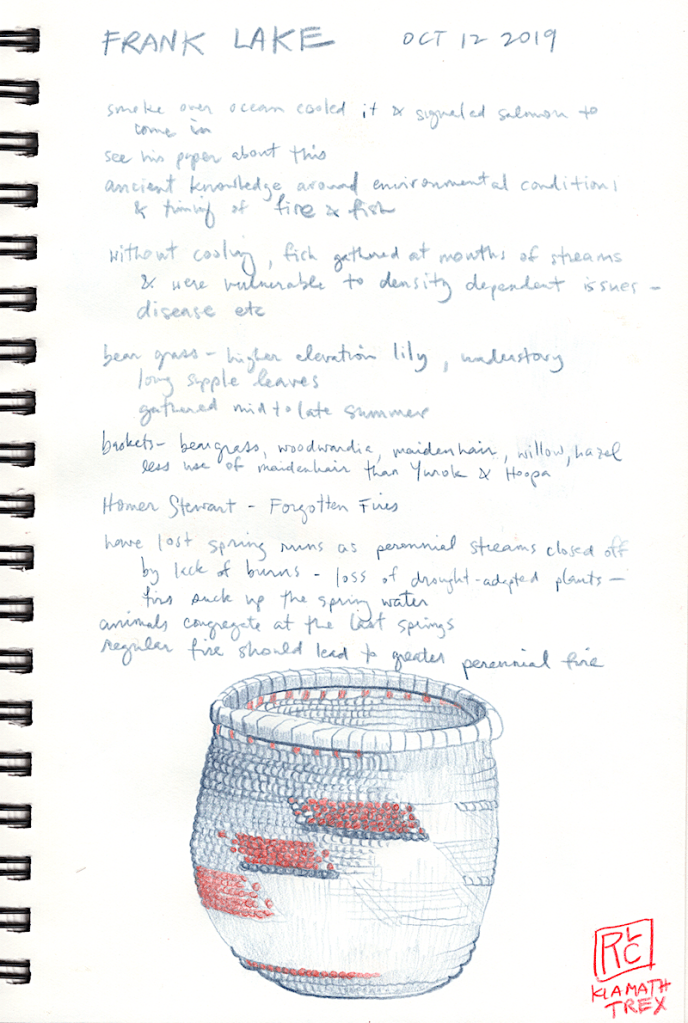 FRANK LAKE OCT 12 2019
smoke over ocean cooled it & signaled salmon to
come in
see his paper about this
ancient knowledge around environmental conditions
& timing of fire & fish
without cooling, fish gathered at mouths of streams
& were vulnerable to density dependent issues -
disease etc
bear grass - higher elevation lily, understory
long supple leaves
gathered mid to late summer
baskets - beargrass, woodwardia, maidenhair, willow, hazel
less use of maidenhair than Yurok & Hoopa
Homer Stewart - Forgotten Fires
have lost spring runs as perennial streams closed off
by lack of burns - loss of drought-adapted plants -
firs suck up the spring water
animals congregate at the last springs
regular fire should lead to greater perennial fire
RLC
KLAMATH
TREX